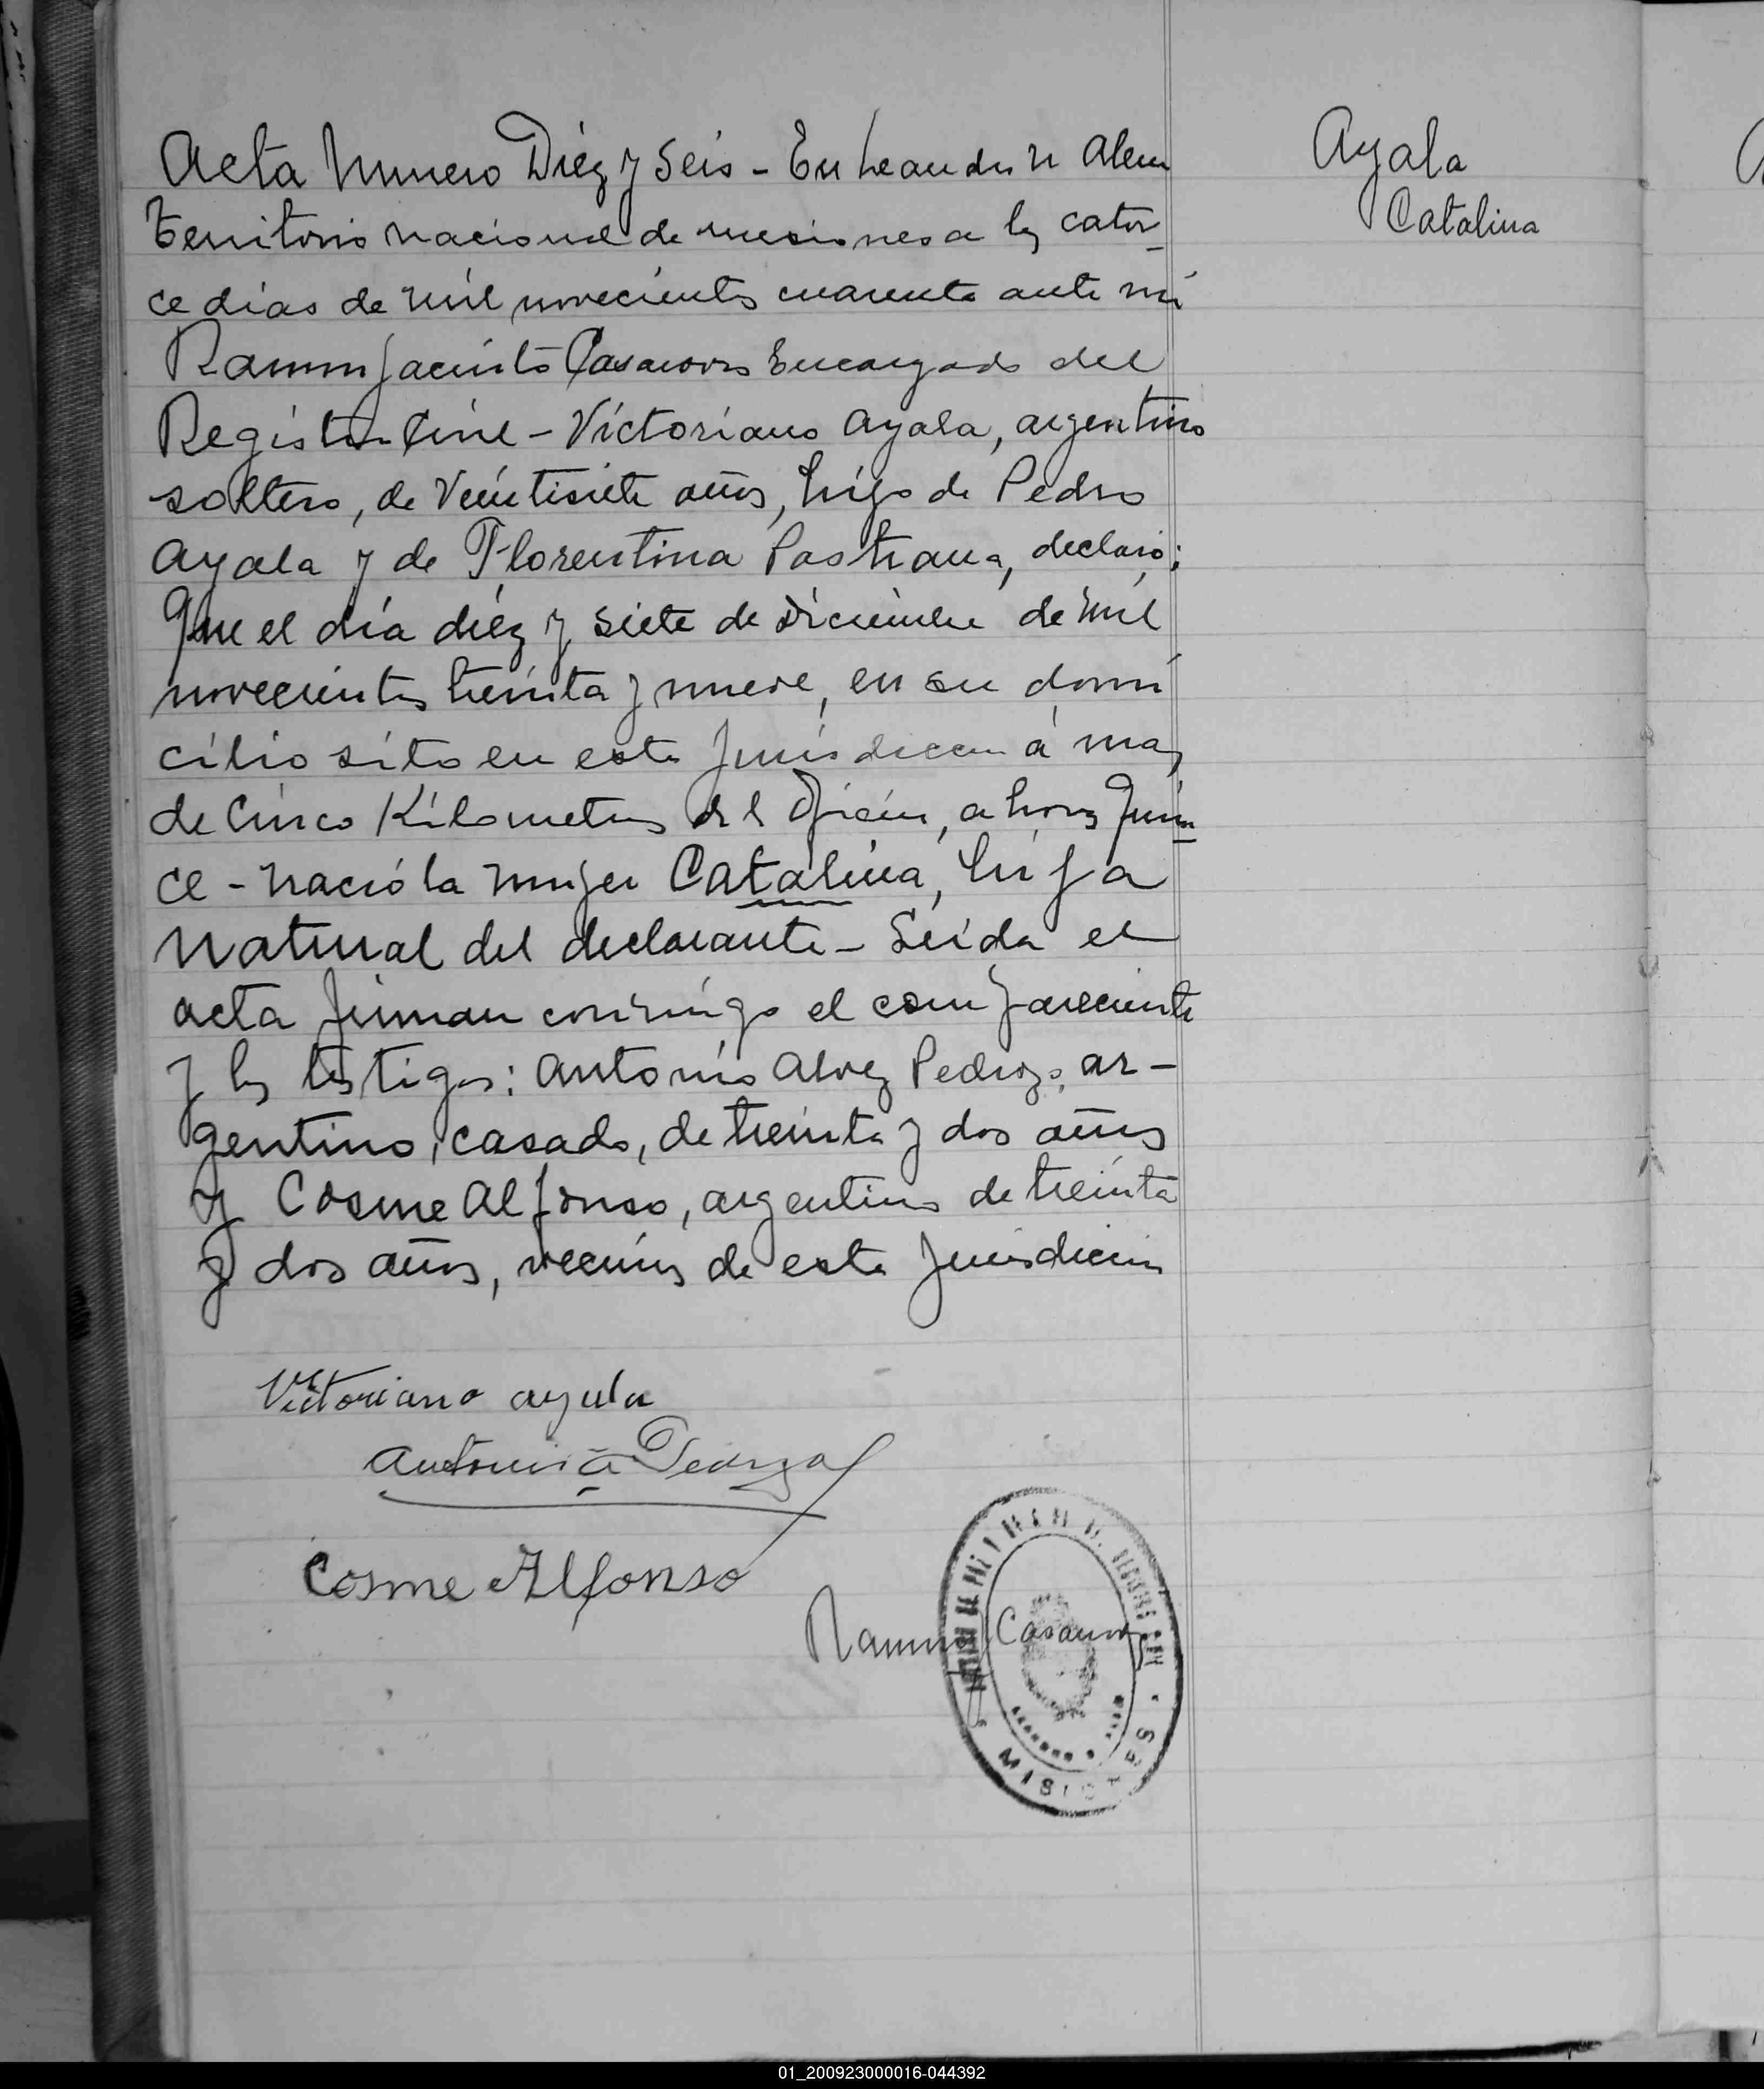 Acta Numero Diéz y Seis - En Leandro N Alem
Territorio nacional de misiones a los cator-
ce días de mil novecientos cuarenta ante mí
Ramon Jacinto Casanova Encargado del
Registro Civil - Victoriano Ayala, argentino
soltero, de Veintisiete años, hijo de Pedro
Ayala y de Florentina Pastrana, declaró:
Que el día diéz y siete de diciembre de mil
novecientos treinta y nueve, en su domi
cilio sito en esta Jurisdiccion á mas
de Cinco Kilometros del, a horas Quin
ce - nació la mujer Catalina, hija
natural del declarante - Leida el
acta firman conmigo el compareciente
y los testigos: Antonio Alvez Pedrozo, ar-
gentino, casado, de treinta y dos años
y Cosme Alfonso, argentino de treinta
y dos años, vecinos de esta Jurisdiccion
Victoriano ayala
Antonio A Pedrozo
Cosme Alfonso
Ramon J Casanova
MISIONES
Ayala
Catalina
01_200923000016-044392